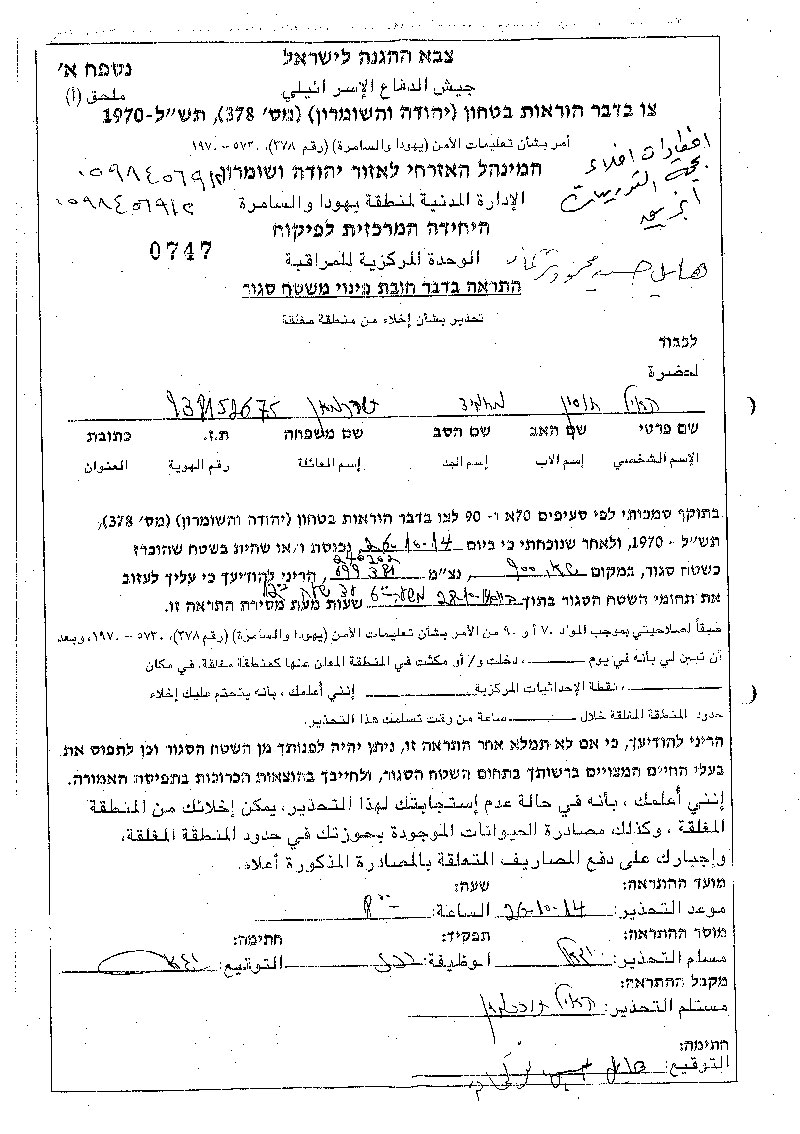 צבא ההגנה לישראל
נספח א'
جيش الدفاع الإسرائيلي
ملحق (أ)
צו בדבר הוראות בטחון (יהודה והשומרון) (מס' 378), תש"ל-1970
أمر بشأن تعليمات الأمن (يهودا والسامرة) (رقم ٣٧٨)، ٥٧٣٠ – ١٩٧٠
اخطارات اخلاء
بحجة التدريبات
המינהל האזרחי לאזור יהודה ושומרון
الإدارة المدنية لمنطقة يهودا والسامرة
היחידה המרכזית לפיקוח
0747
الوحدة المركزية للمراقبة
התראה בדבר חובת פינוי משטח סגור
هايل حسين محمود
تحذير بشأن إخلاء من منطقة مغلقة
לכבוד
لحضرة
האיל חוסין 939152675
שם פרטי שם האב שם הסב שם משפחה ת.ז. כתובת
الإسم الشخصي إسم الاب إسم الجد إسم العائلة رقم الهوية العنوان
בתוקף סמכותי לפי סעיפים 70א ו- 90 לצו בדבר הוראות בטחון (יהודה והשומרון) (מס' 378),
תש"ל - 1970, ולאחר שנוכחתי כי ביום 26-10-14 נכנסת ו/או שהית בשטח שהוכרז
כשטח סגור, במקום שא. 900, נצ"מ הריני להודיעך כי עליך לעזוב
את תחומי השטח הסגור בתוך 28-10-14 שעות מעת מסירת התראה זו.
طبقاً لصلاحيتي بموجب المواد ٧٠ أ و ٩٠ من الأمر بشأن تعليمات الأمن (يهودا والسامرة) (رقم ٣٧٨)، ٥٧٣٠ – ١٩٧٠، وبعد
أن تبين لي بأنه في يوم ______ دخلت و/ أو مكثت في المنطقة المعلن عنها كمنطقة مغلقة، في مكان
______، نقطة الإحداثيات المركزية ______ إنني أعلمك، بأنه يتحتم عليك إخلاء
حدود المنطقة المغلقة خلال ______ ساعة من وقت تسلمك هذا التحذير.
הריני להודיעך, כי אם לא תמלא אחר התראה זו, ניתן יהיה לפנותך מן השטח הסגור וכן לתפוס את
בעלי החיים המצויים ברשותך בתחום השטח הסגור, ולחייבך בהוצאות הכרוכות בתפיסה האמורה.
إنني أعلمك ، بأنه في حالة عدم إستجابتك لهذا التحذير، يمكن إخلائك من المنطقة
المغلقة ، وكذلك مصادرة الحيوانات الموجودة بحوزتك في حدود المنطقة المغلقة،
وإجبارك على دفع المصاريف المتعلقة بالمصادرة المذكورة أعلاه.
מועד ההתראה: שעה:
موعد التحذير: 26-10-14 الساعة:
מוסר ההתראה: תפקיד: חתימה:
مسلم التحذير: الوظيفة: التوقيع:
מקבל ההתראה:
مستلم التحذير: האיל
חתימה:
التوقيع: هايل